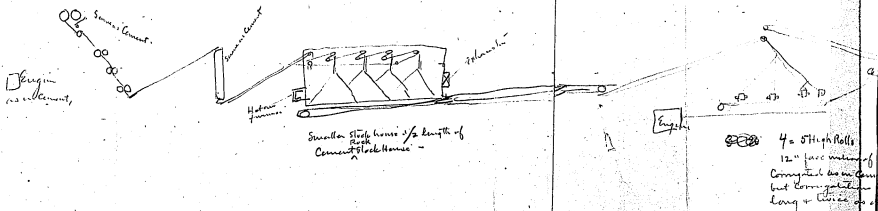 Same as Cement.
Same as Cement
Engin
as in Cement,
Hot air
furnace
Exhaustor
Smaller Stock house 1/2 length of
Rock
Cement Stock House -
Engin
4 = 5 High Rolls
12" face
Corrugated as in Cem
but corrugations
long & twice as